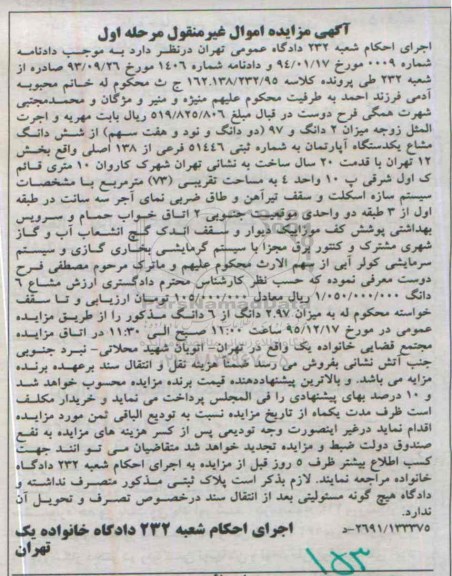 آگهی مزایده اموال غیرمنقول مرحله اول
اجرای احکام شعبه ۲۳۲ دادگاه عمومی تهران درنظر دارد به موجب دادنامه
شماره ۰۰۰۹ مورخ ۹۴/۰۱/۱۷ و دادنامه شماره ۱۴۰۶ مورخ ۹۳/۰۹/۲۶ صادره از
شعبه ۲۳۲ طی پرونده کلاسه ۱۶۲،۱۳۸/۲۳۲/۹۵ ج ث محکوم له خانم محبوبه
آدمی فرزند احمد به طرفیت محکوم علیهم منیژه و منیر و مژگان و محمدمجتبی
شهرت همگی فرح دوست در قبال مبلغ ۵۱۹/۸۲۵/۸۰۶ ریال بابت مهریه و اجرت
المثل زوجه میزان ۲ دانگ و ۹۷ (دو دانگ و نود و هفت سهم) از شش دانگ
مشاع یکدستگاه آپارتمان به شماره ثبتی ۵۱۴۴۶ فرعی از ۱۳۸ اصلی واقع بخش
۱۲ تهران با قدمت ۲۰ سال ساخت به نشانی تهران شهرک کاروان ۱۰ متری قائم
ک اول شرقی پ ۱۰ واحد ۴ به مساحت تقریبی (۷۳) مترمربع با مشخصات
سیستم سازه اسکلت و سقف تیرآهن و طاق ضربی نمای آجر سه سانت در طبقه
اول از ۳ طبقه دو واحدی موقعیت جنوبی ۲ اتاق خواب حمام و سرویس
بهداشتی پوشش کف موزاییک دیوار و سقف اندک گچ انشعاب آب و گاز
شهری مشترک و کنتور برق مجزا با سیستم گرمایشی بخاری گازی و سیستم
سرمایشی کولر آبی از سهم الارث محکوم علیهم و ماترک مرحوم مصطفی فرح
دوست معرفی نموده که حسب نظر کارشناس محترم دادگستری ارزش مشاع ۶
دانگ ۱/۰۵۰/۰۰۰/۰۰۰ ریال معادل ۱۰۵/۰۰۰/۰۰۰ تومان ارزیابی و تا سقف
خواسته محکوم له به میزان ۲،۹۷ دانگ از ۶ دانگ مذکور را از طریق مزایده
عمومی در مورخ ۹۵/۱۲/۱۷ ساعت ۱۱:۰۰ صبح الی ۱۱:۳۰ در اتاق مزایده
مجتمع قضایی خانواده یک واقع در تهران - اتوبان شهید محلاتی- نبرد جنوبی
جنب آتش نشانی بفروش می رسد ضمنا هزینه نقل و انتقال سند برعهده برنده
مزایه می باشد. و بالاترین پیشنهاددهنده قیمت برنده مزایده محسوب خواهد شد
و ۱۰ درصد بهای پیشنهادی را فی المجلس پرداخت می نماید و خریدار مکلف
است ظرف مدت یکماه از تاریخ مزایده نسبت به تودیع الباقی ثمن مورد مزایده
اقدام نماید درغیر اینصورت وجه تودیعی پس از کسر هزینه های مزایده به نفع
صندوق دولت ضبط و مزایده تجدید خواهد شد متقاضیان می تو انند جهت
کسب اطلاع بیشتر ظرف ۵ روز قبل از مزایده به اجرای احکام شعبه ۲۳۲ دادگاه
خانواده مراجعه نمایند. لازم بذکر است پلاک ثبتی مذکور متصرف نداشته و
دادگاه هیچ گونه مسئولیتی بعد از انتقال سند درخصوص تصرف و تحویل آن
ندارد.
۲۶۹۱/۱۳۳۳۷۵-د
اجرای احکام شعبه ۲۳۲ دادگاه خانواده یک
تهران
۱۵۳